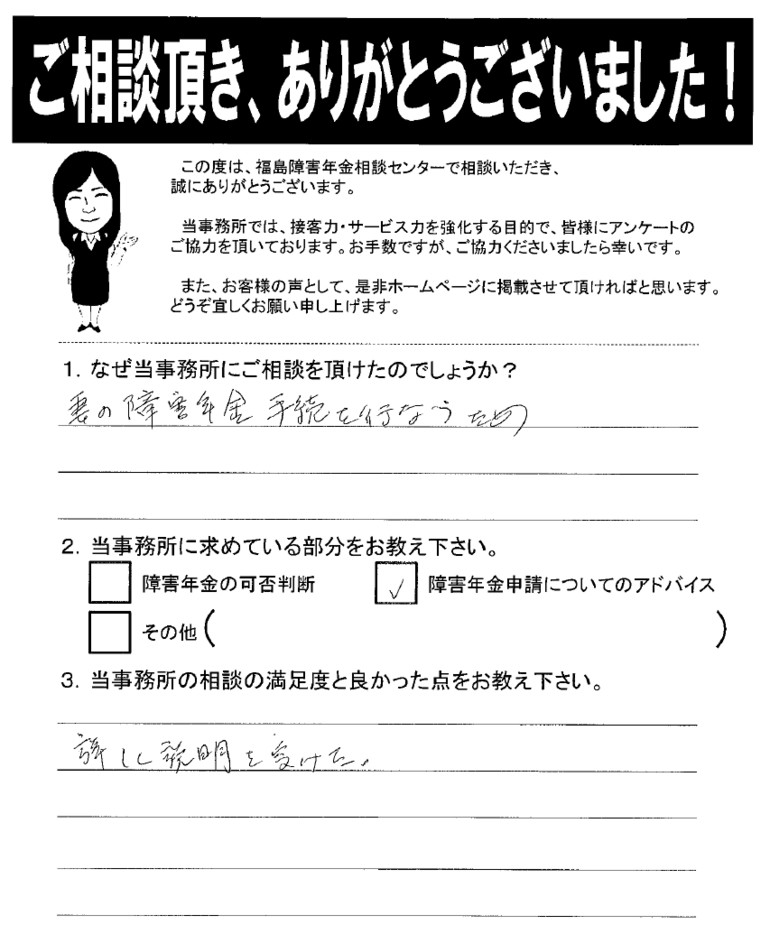 ご相談頂き、ありがとうございました！
この度は、福島障害年金相談センターで相談いただき、
誠にありがとうございます。
当事務所では、接客力・サービス力を強化する目的で、皆様にアンケートの
ご協力を頂いております。お手数ですが、ご協力くださいましたら幸いです。
また、お客様の声として、是非ホームページに掲載させて頂ければと思います。
どうぞ宜しくお願い申し上げます。
1. なぜ当事務所にご相談を頂けたのでしょうか？
妻の障害年金手続を行なうため
2. 当事務所に求めている部分をお教え下さい。
障害年金の可否判断 ✓ 障害年金申請についてのアドバイス
その他( )
3. 当事務所の相談の満足度と良かった点をお教え下さい。
詳しく説明を受けた。